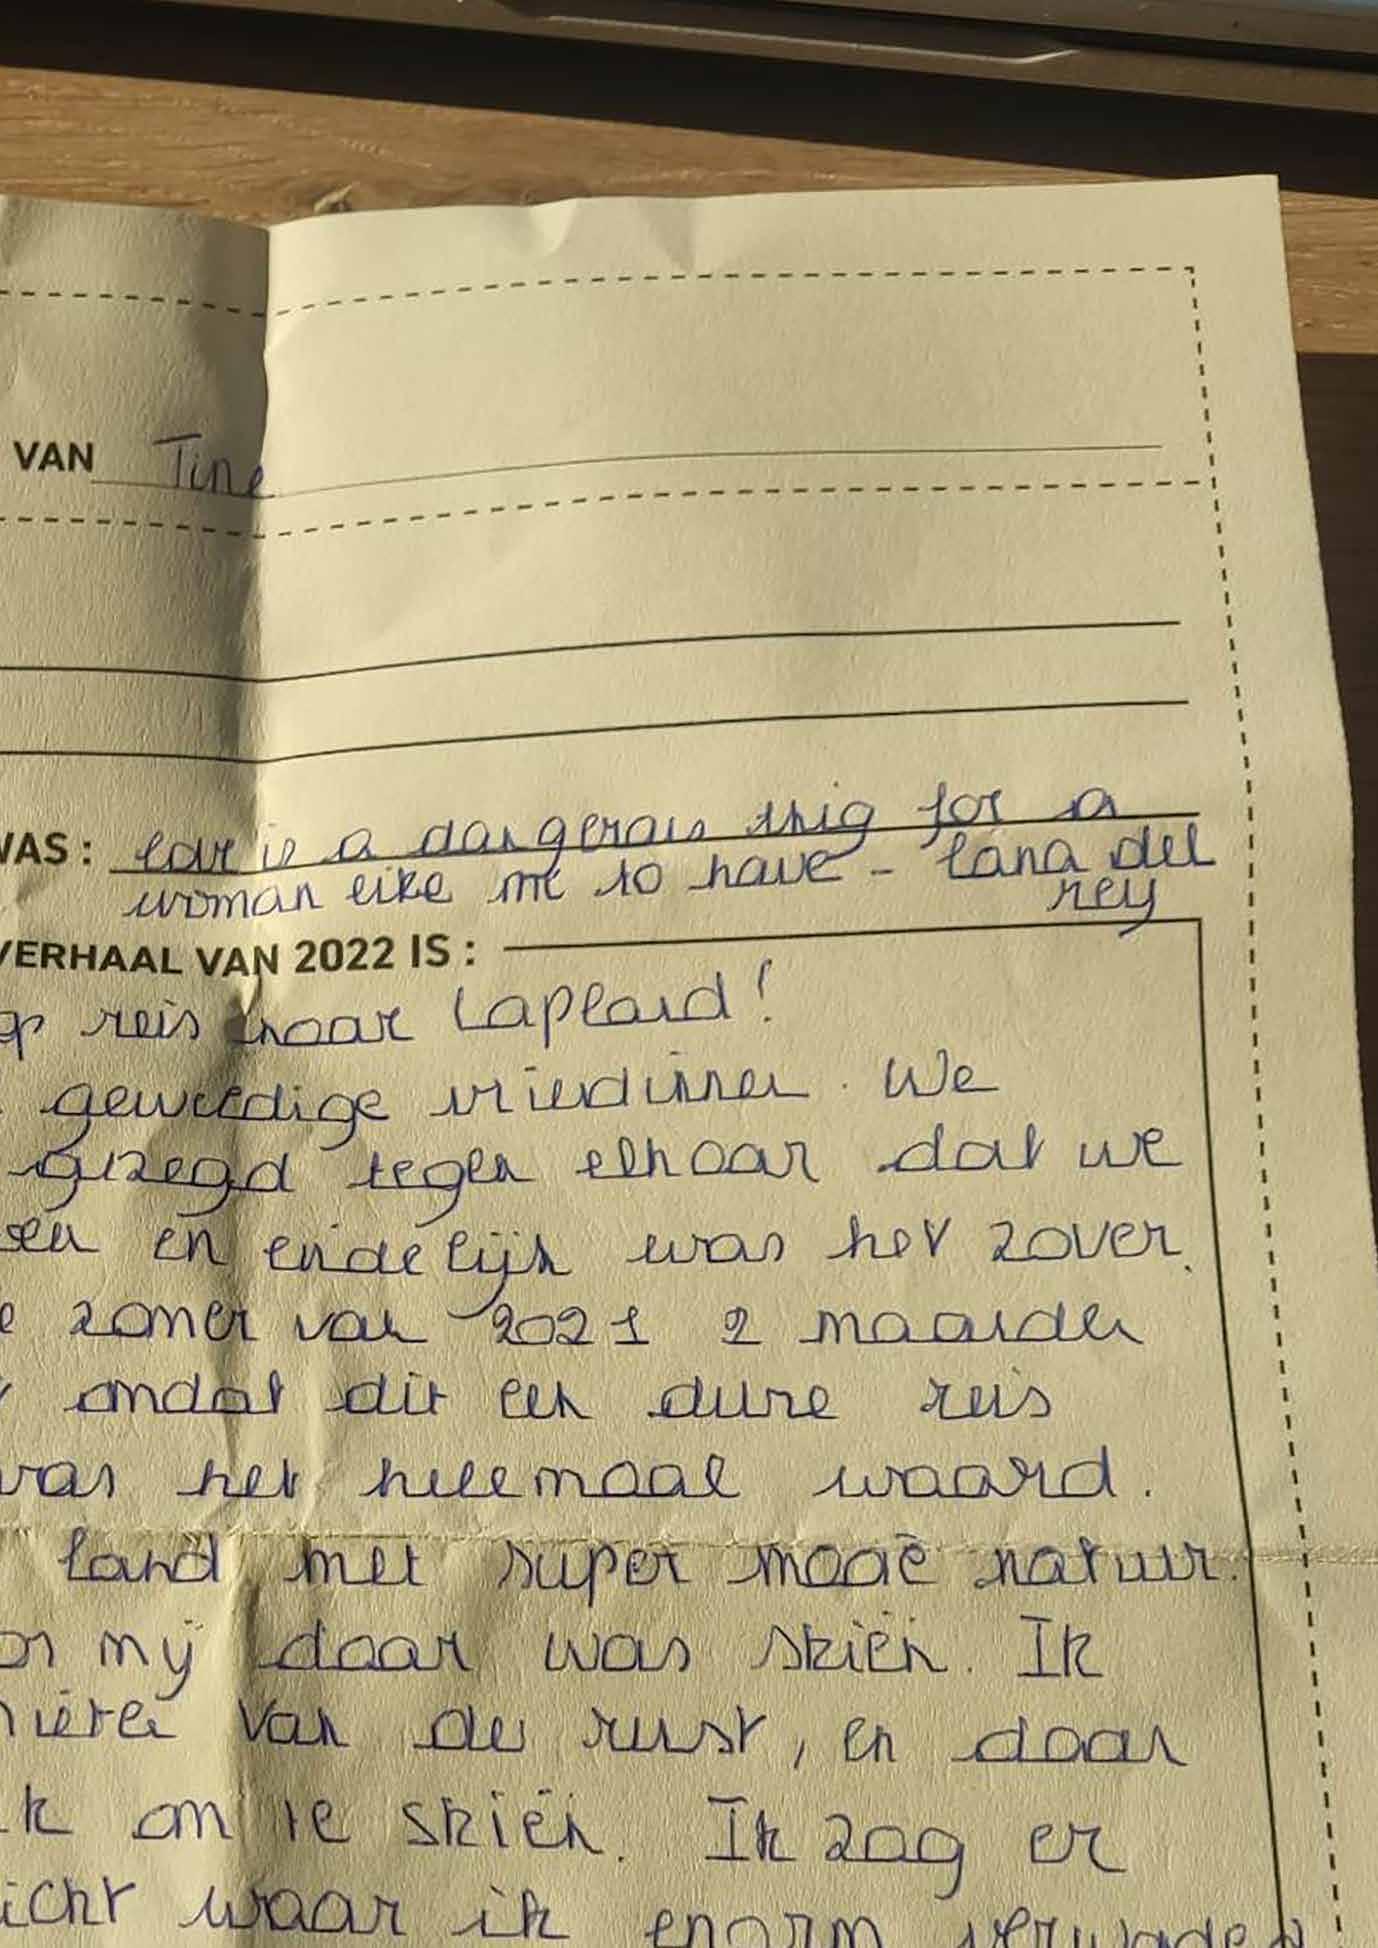 VAN Tine
WAS : love is a dangerous thig for a
woman like me to have - lana del
rey
VERHAAL VAN 2022 IS :
op reis naar Lapland!
geweldige vriendinnen. We
gezegd tegen elkaar dat we
en eindelijk was het zover.
zomer van 2021 2 maanden
omdat dit een dure reis
was het helemaal waard.
land met super mooie natuur.
mij daar was skiën. Ik
van de rust, en daar
ik om te skiën. Ik zag er
waar ik enorm